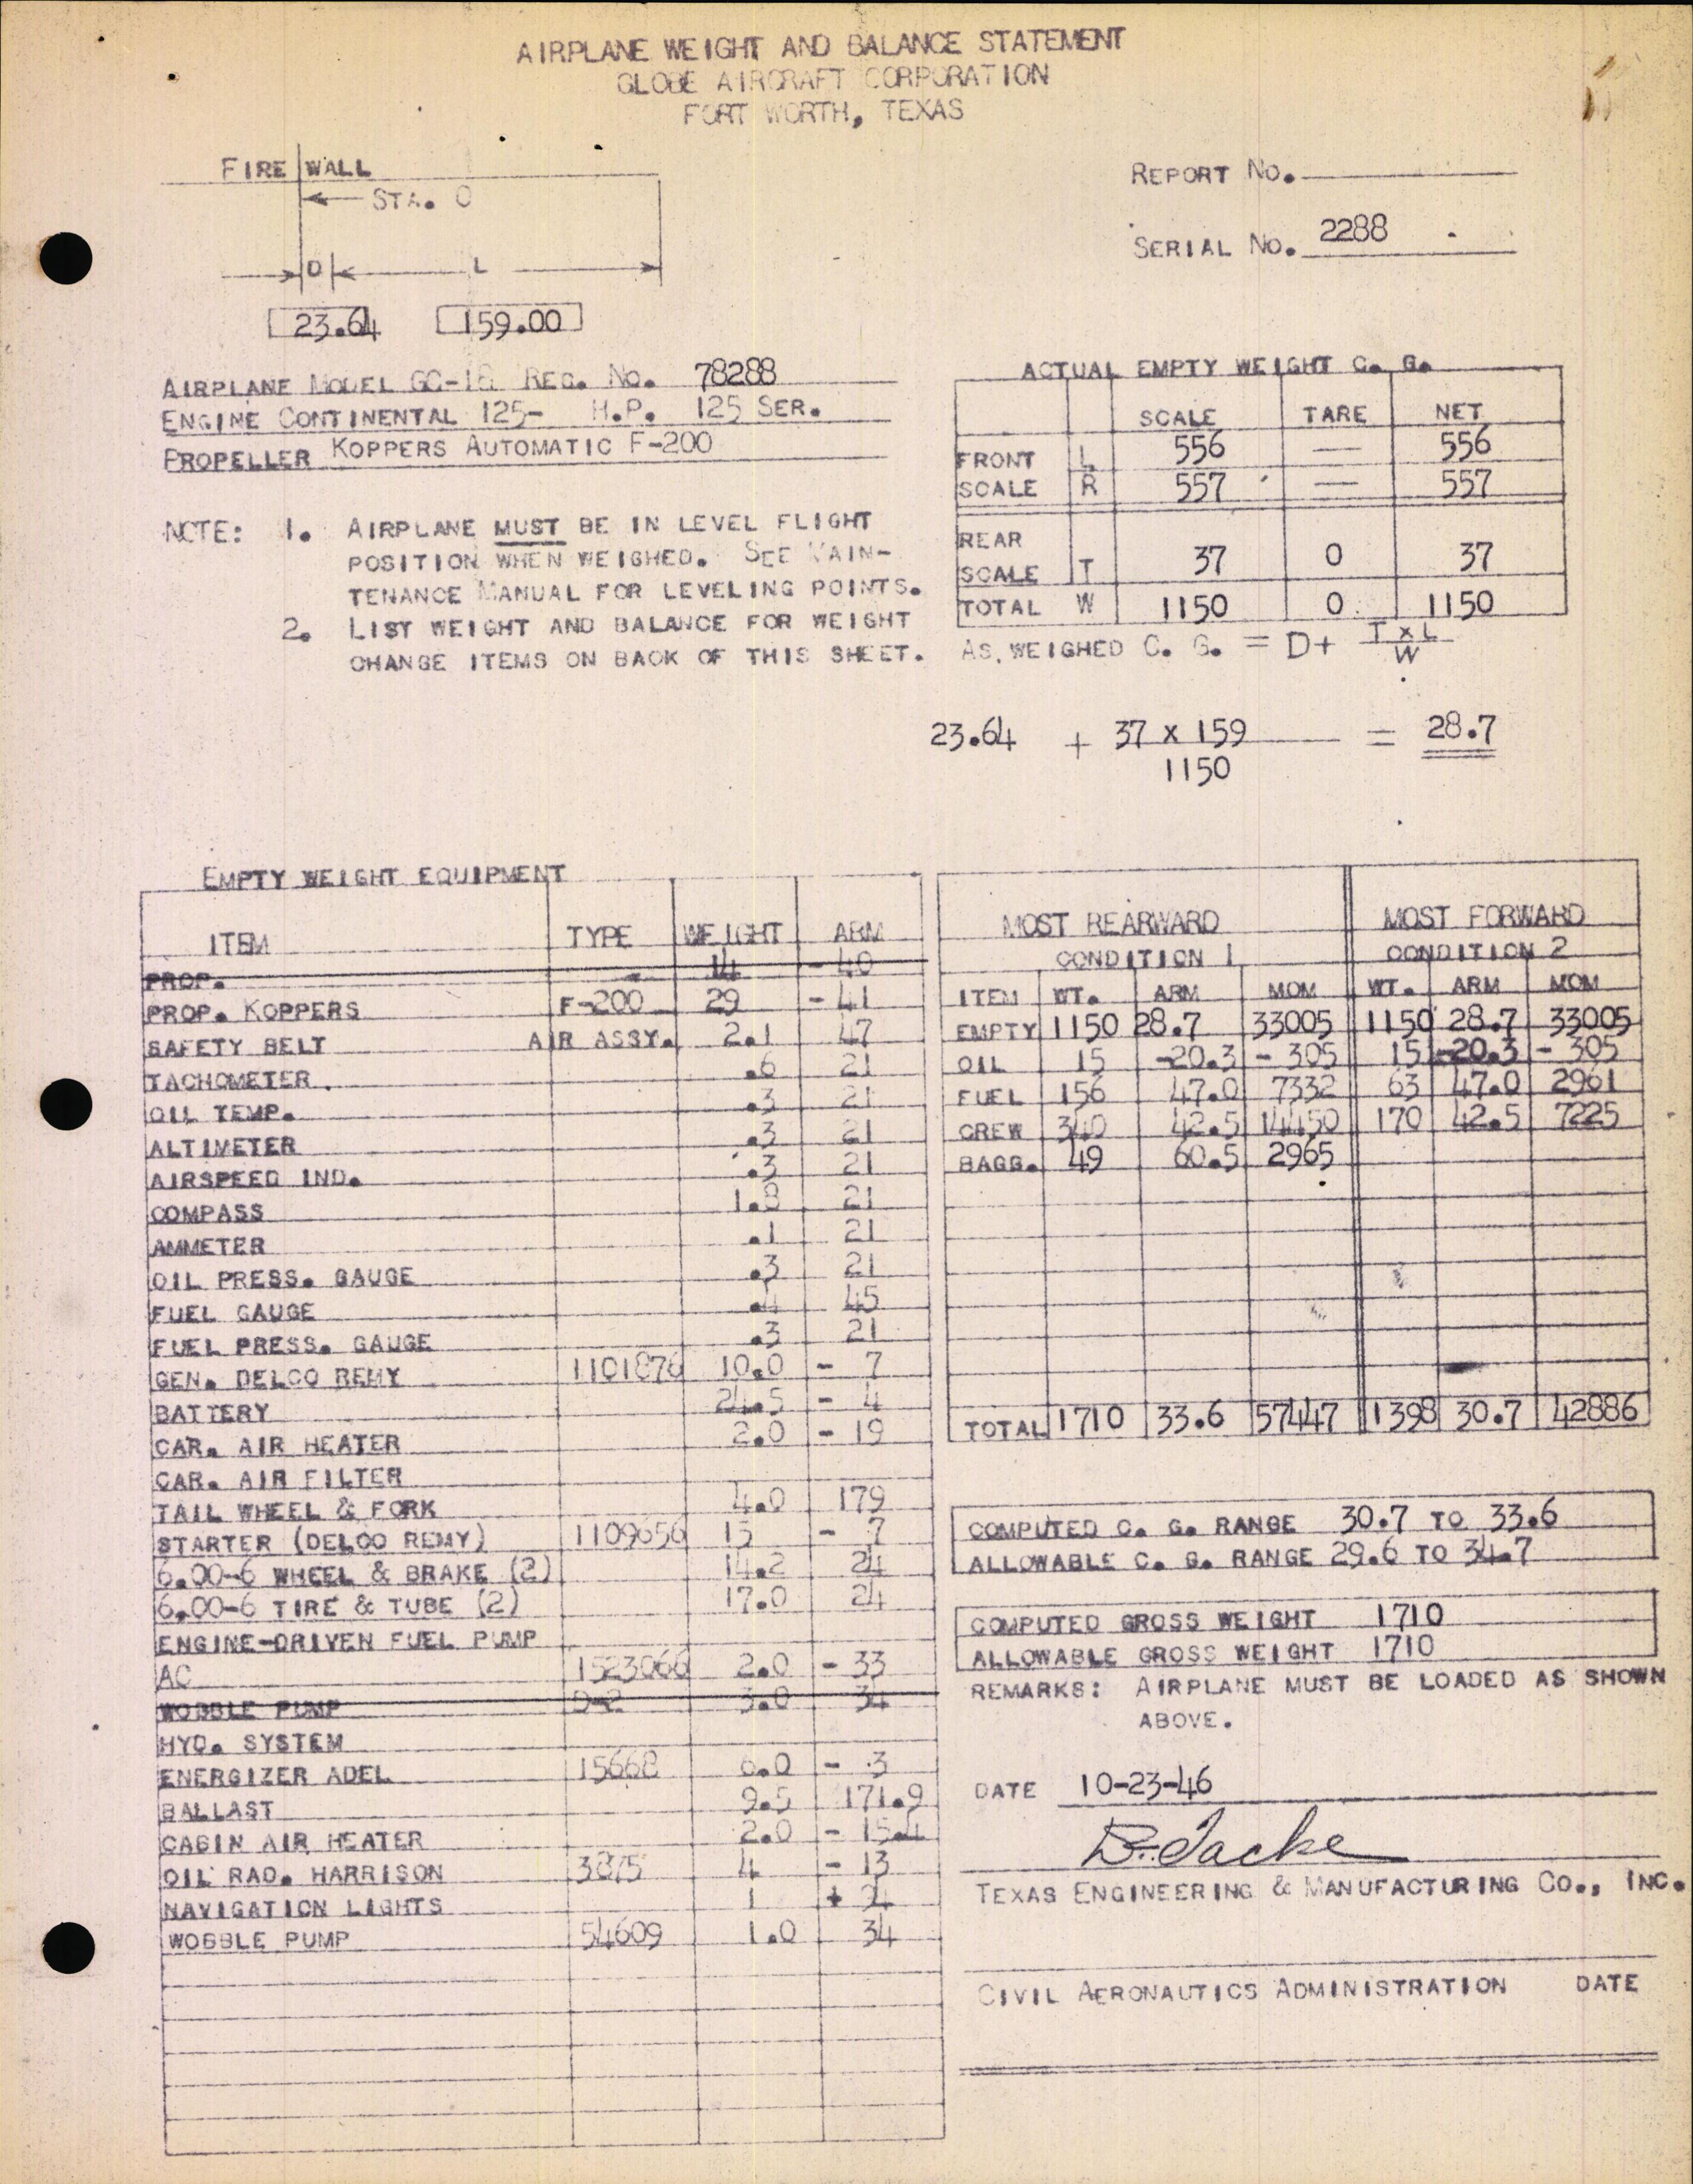 AIRPLANE WEIGHT AND BALANCE STATEMENT
GLOBE AIRCRAFT CORPORATION
FORT WORTH, TEXAS
FIRE WALL
STA. 0
D L
23.64 159.00
REPORT NO.
SERIAL NO. 2288
AIRPLANE MODEL GC-1B REG. NO. 78288
ENGINE CONTINENTAL 125- H.P. 125 SER.
PROPELLER KOPPERS AUTOMATIC F-200
NOTE: 1. AIRPLANE MUST BE IN LEVEL FLIGHT
POSITION WHEN WEIGHED. SEE MAIN-
TENANCE MANUAL FOR LEVELING POINTS.
2. LIST WEIGHT AND BALANCE FOR WEIGHT
CHANGE ITEMS ON BACK OF THIS SHEET.
ACTUAL EMPTY WEIGHT C. G.
SCALE TARE NET
FRONT L 556 — 556
SCALE R 557 — 557
REAR
SCALE T 37 0 37
TOTAL W 1150 0 1150
AS WEIGHED C. G. = D+ T x L
W
23.64 + 37 x 159 = 28.7
1150
EMPTY WEIGHT EQUIPMENT
ITEM TYPE WEIGHT ARM
PROP. 14 - 40
PROP. KOPPERS F-200 29 - 41
SAFETY BELT AIR ASSY. 2.1 47
TACHOMETER .6 21
OIL TEMP. .3 21
ALTIMETER .3 21
AIRSPEED IND. .3 21
COMPASS 1.8 21
AMMETER .1 21
OIL PRESS. GAUGE .3 21
FUEL GAUGE .4 45
FUEL PRESS. GAUGE .3 21
GEN. DELCO REMY 1101876 10.0 - 7
BATTERY 24.5 - 4
CAR. AIR HEATER 2.0 - 19
CAR. AIR FILTER
TAIL WHEEL & FORK 4.0 179
STARTER (DELCO REMY) 1109656 15 - 7
6.00-6 WHEEL & BRAKE (2) 14.2 24
6.00-6 TIRE & TUBE (2) 17.0 24
ENGINE-DRIVEN FUEL PUMP
AC 1523066 2.0 - 33
WOBBLE PUMP D-2 3.0 34
HYD. SYSTEM
ENERGIZER ADEL 15668 6.0 - 3
BALLAST 9.5 171.9
CABIN AIR HEATER 2.0 - 15.4
OIL RAD. HARRISON 3875 4 - 13
NAVIGATION LIGHTS 1 +
WOBBLE PUMP 54609 1.0 34
MOST REARWARD MOST FORWARD
CONDITION 1 CONDITION 2
ITEM WT. ARM MOM WT. ARM MOM
EMPTY 1150 28.7 33005 1150 28.7 33005
OIL 15 -20.3 - 305 15 -20.3 - 305
FUEL 156 47.0 7332 63 47.0 2961
CREW 340 42.5 14450 170 42.5 7225
BAGG. 49 60.5 2965
TOTAL 1710 33.6 57447 1398 30.7 42886
COMPUTED C. G. RANGE 30.7 TO 33.6
ALLOWABLE C. G. RANGE 29.6 TO 34.7
COMPUTED GROSS WEIGHT 1710
ALLOWABLE GROSS WEIGHT 1710
REMARKS: AIRPLANE MUST BE LOADED AS SHOWN
ABOVE.
DATE 10-23-46
TEXAS ENGINEERING & MANUFACTURING CO., INC.
CIVIL AERONAUTICS ADMINISTRATION DATE